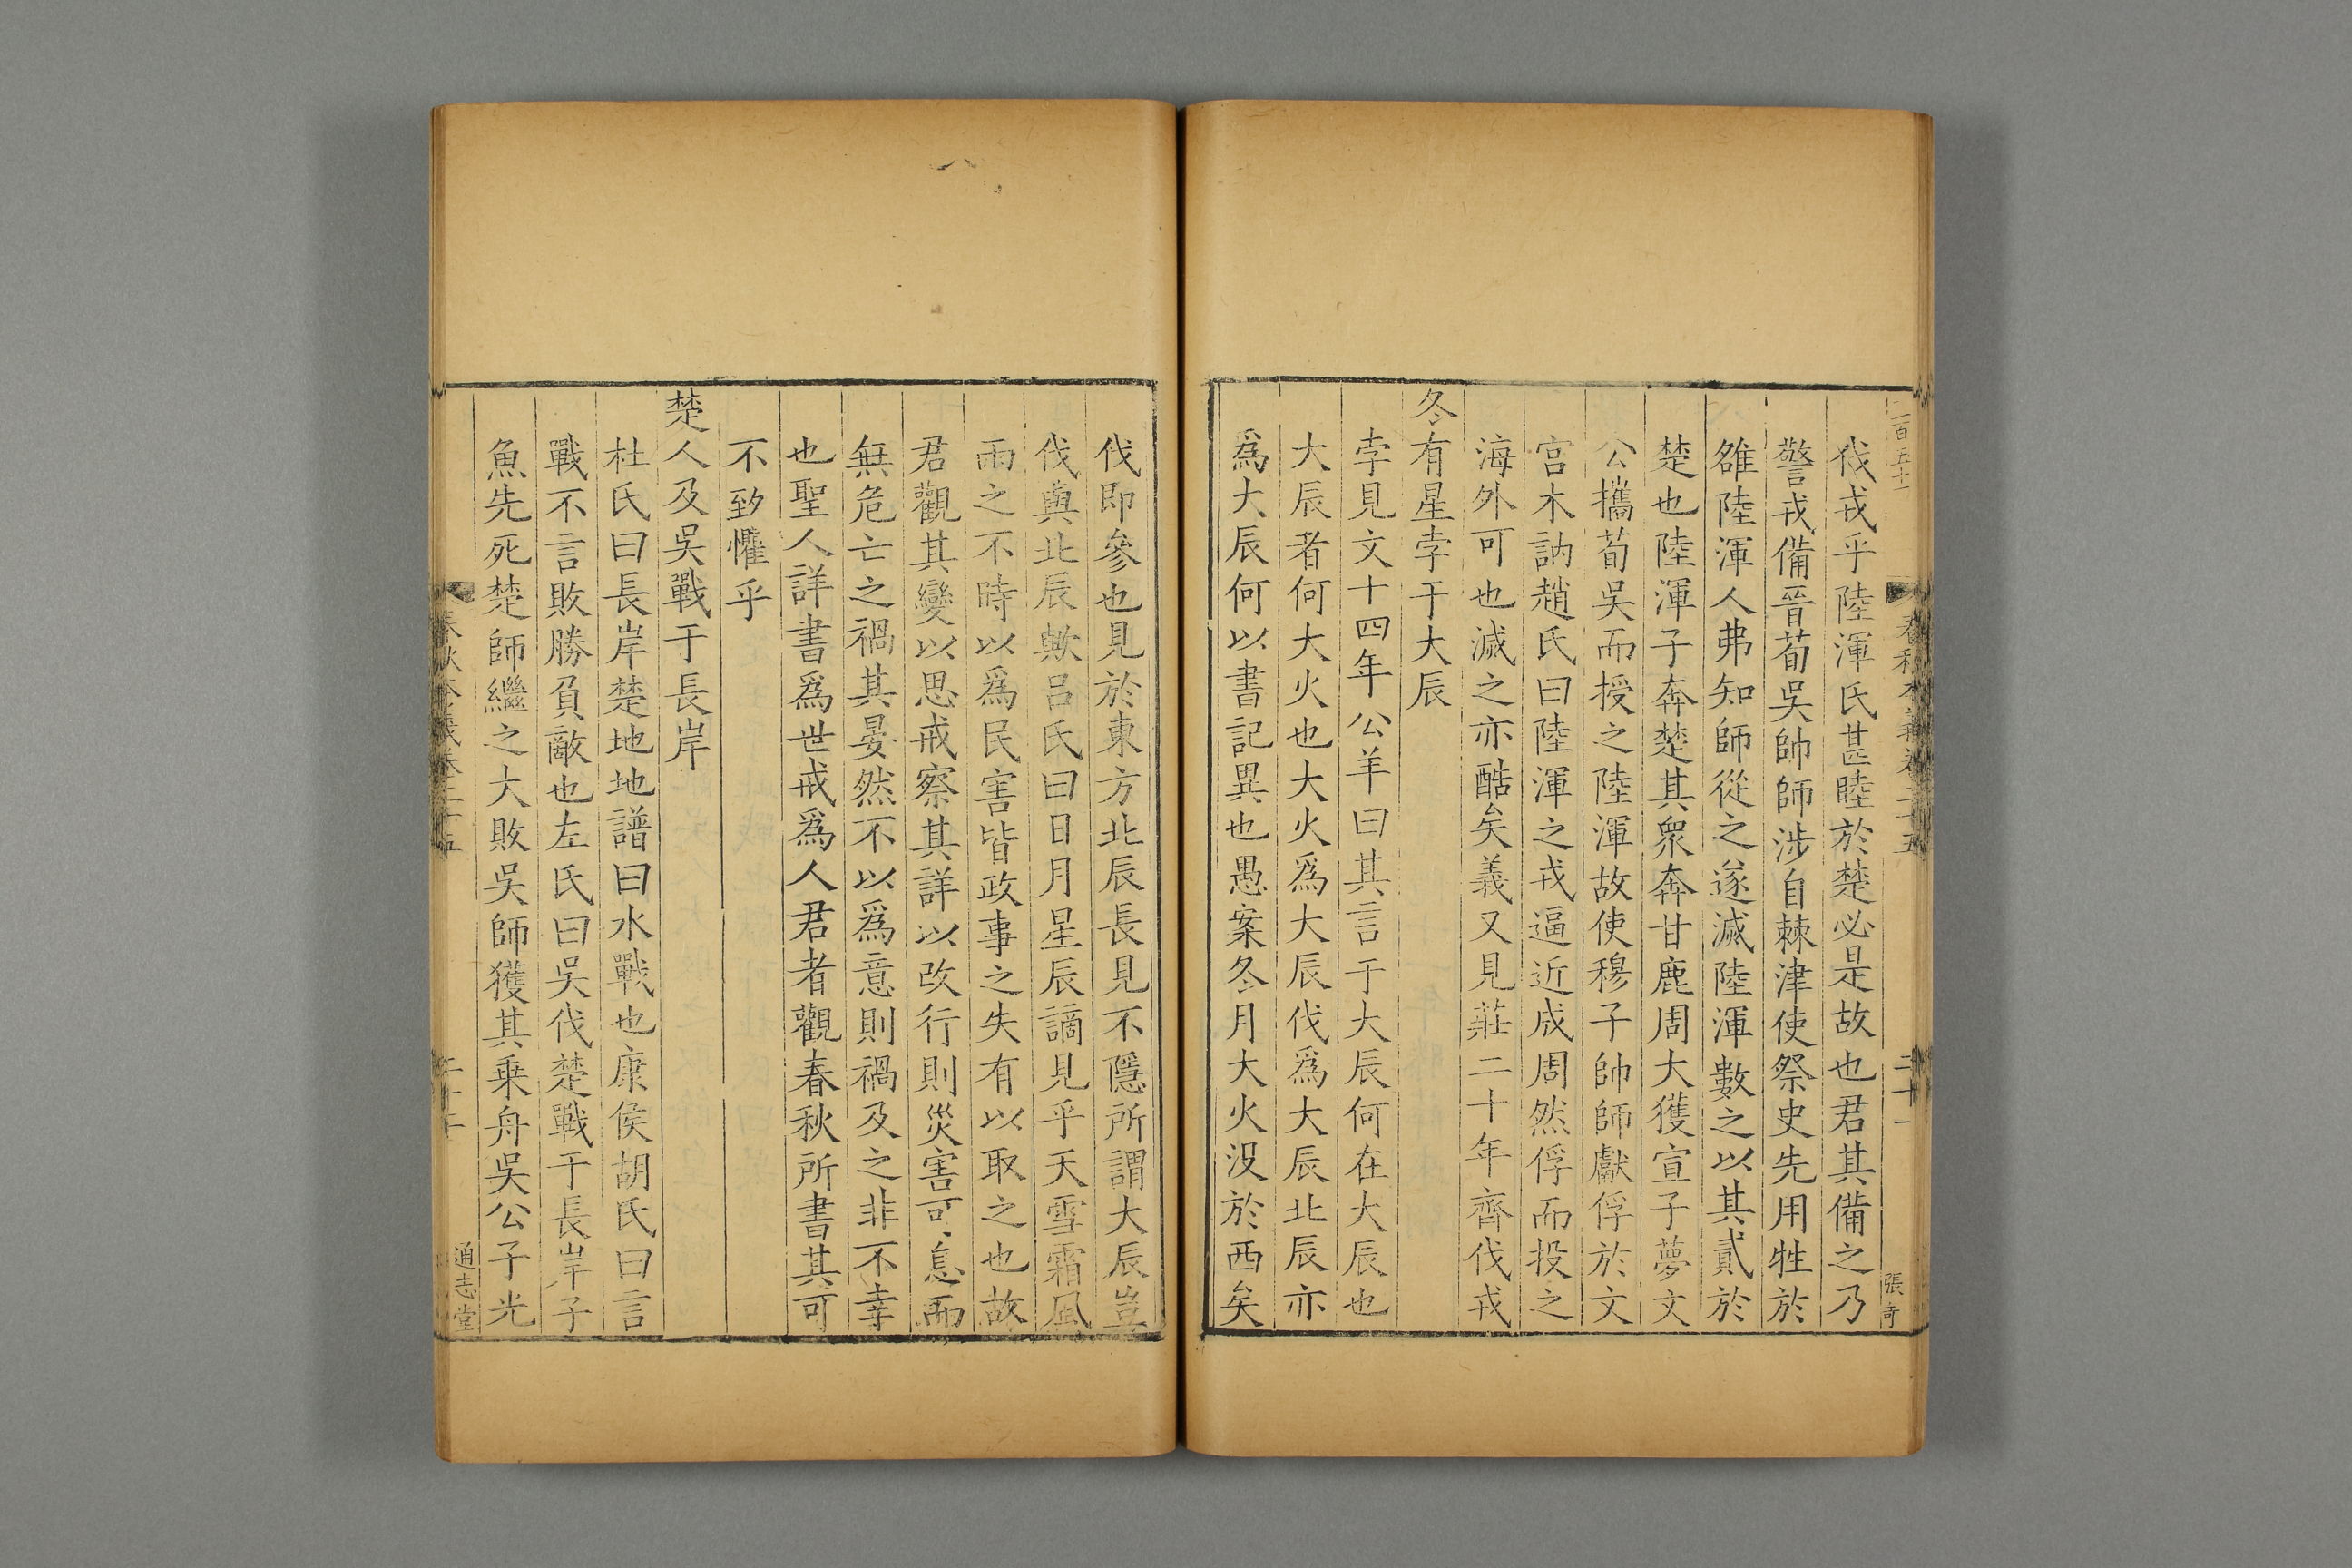 二百五十一
春秋本義卷二十五
二十一
張奇
伐戎乎陸渾氏甚睦於楚必是故也君其備之乃
警戎備晉荀吳帥師涉自棘津使祭史先用牲於
雒陸渾人弗知師從之遂滅陸渾數之以其貳於
楚也陸渾子奔楚其衆奔甘鹿周大獲宣子夢文
公攜荀吳而授之陸渾故使穆子帥師獻俘於文
宫木訥趙氏曰陸渾之戎逼近成周然俘而投之
海外可也滅之亦酷矣義又見莊二十年齊伐戎
冬有星孛于大辰
孛見文十四年公羊曰其言于大辰何在大辰也
大辰者何大火也大火爲大辰伐爲大辰北辰亦
爲大辰何以書記異也愚案冬月大火没於西矣
伐即參也見於東方北辰長見不隱所謂大辰豈
伐與北辰歟吕氏曰日月星辰謫見乎天雪霜風
雨之不時以爲民害皆政事之失有以取之也故
君觀其變以思戒察其詳以改行則災害可息而
無危亡之禍其晏然不以爲意則禍及之非不幸
也聖人詳書爲世戒爲人君者觀春秋所書其可
不致懼乎
楚人及吳戰于長岸
杜氏曰長岸楚地地譜曰水戰也康侯胡氏曰言
戰不言敗勝負敵也左氏曰吳伐楚戰于長岸子
魚先死楚師繼之大敗吳師獲其乗舟吳公子光
春秋本義卷二十五
通志堂